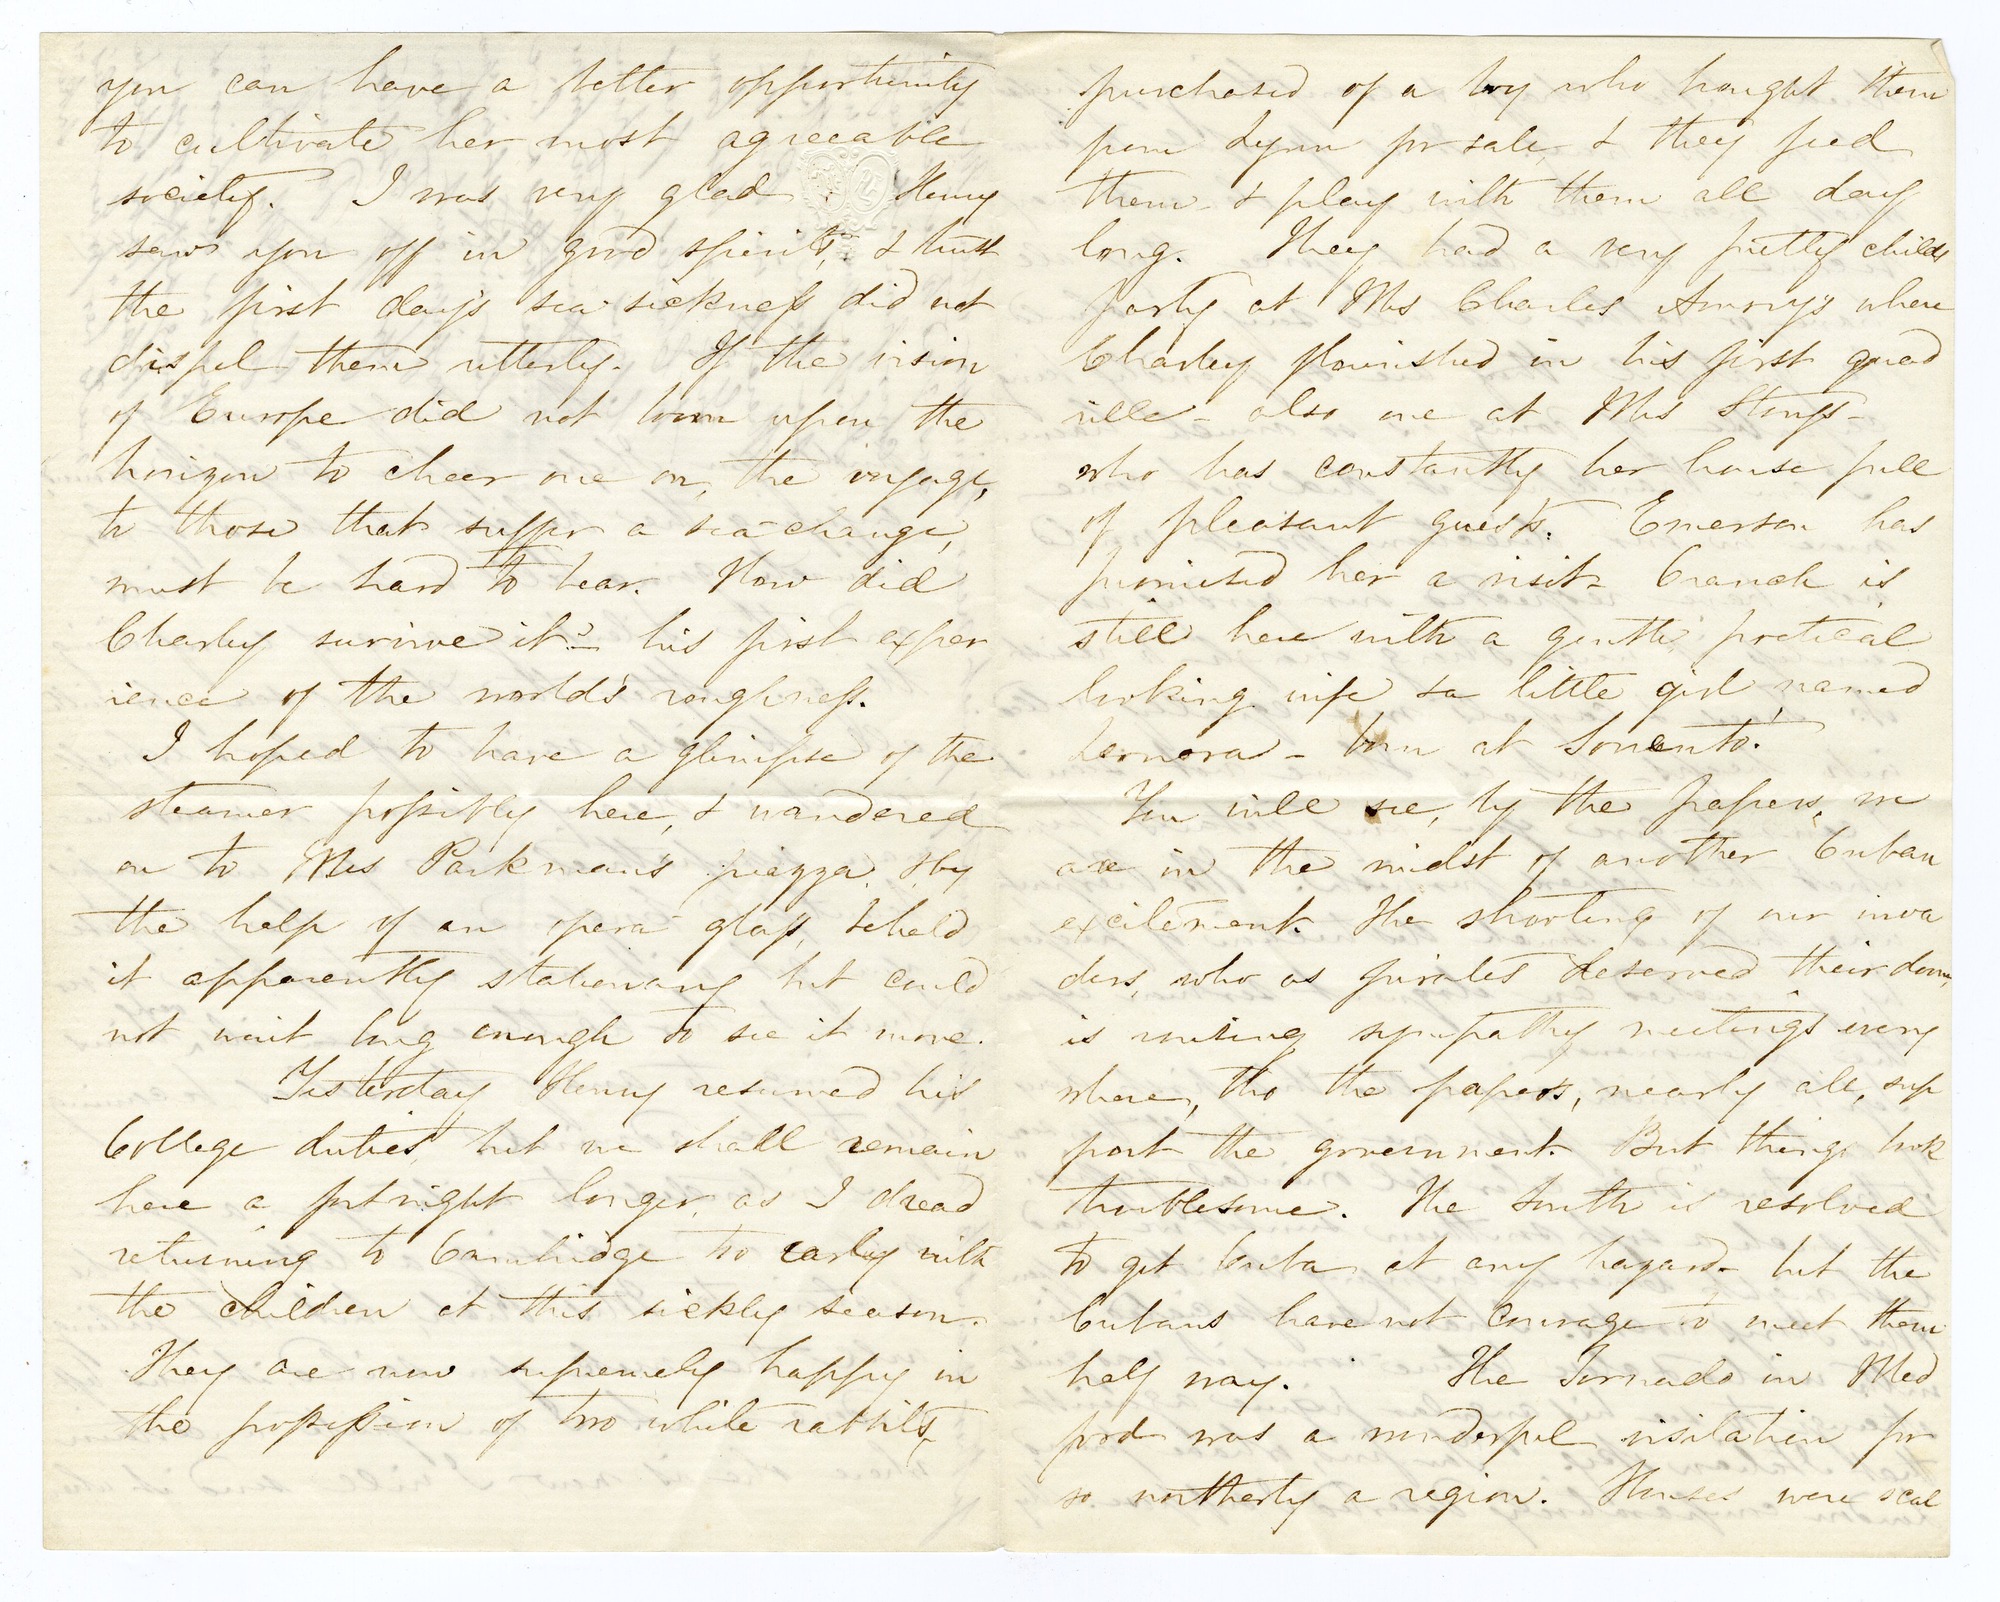 you can have a better opportunity
to cultivate her most agreeable
society. I was very glad Henry
saw you off in good spirits, & trust
the first day's sea-sickness did not
dispel them utterly. If the vision
of Europe did not loom upon the
horizon to cheer one on, the voyage,
to those that suffer a sea-change,
must be hard to bear. How did
Charley survive it? – his first exper
ience of the world's roughness.
I hoped to have a glimpse of the
steamer possibly here, & wandered
on to Mrs Parkman's piazza, & by
the help of an opera glass, beheld
it apparently stationary but could
not wait long enough to see it move.
Yesterday Henry resumed his
College duties, but we shall remain
here a fortnight longer, as I dread
returning to Cambridge too early with
the children at this sickly season.
They are now supremely happy in
the possession of two white rabbits,
purchased of a boy who brought them
from Lynn for sale, & they feed
them & play with them all day
long. They had a very pretty childs
party at Mrs Charles Amory's where
Charley flourished in his first quad
rille – also one at Mrs Story's –
who has constantly her house full
of pleasant guests. Emerson has
promised her a visit – Cranch is
still here with a gentle, poetical
looking wife, & a little girl, named
Leonora – born at Sorrento.
You will see, by the papers, we
are in the midst of another Cuban
excitement. The shooting of our inva
ders, who as pirates deserved their doom,
is raising sympathy meetings every
where, tho the papers, nearly all, sup
port the government. But things look
troublesome. The South is resolved
to get Cuba at any hazard – but the
Cubans have not courage to meet them
half way. The Tornado in Med
ford was a wonderful visitation for
so northerly a region. Houses were scal